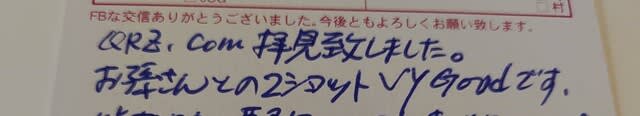 村
FBな交信ありがとうございました。今後ともよろしくお願い致します。
QRZ.com 拝見致しました。
お孫さんとの2ショット VY Goodです.